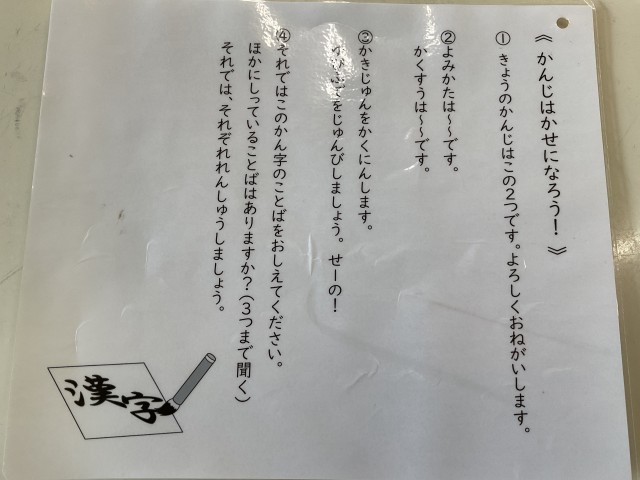 《 かんじはかせになろう！ 》
① きょうのかんじはこの２つです。よろしくおねがいします。
②よみかたは〜〜です。
かくすうは〜〜です。
③かきじゅんをかくにんします。
ゆびふでをじゅんびしましょう。せーの！
④それではこのかん字のことばをおしえてください。
ほかにしっていることばはありますか？（３つまで聞く）
それでは、それぞれれんしゅうしましょう。
漢字